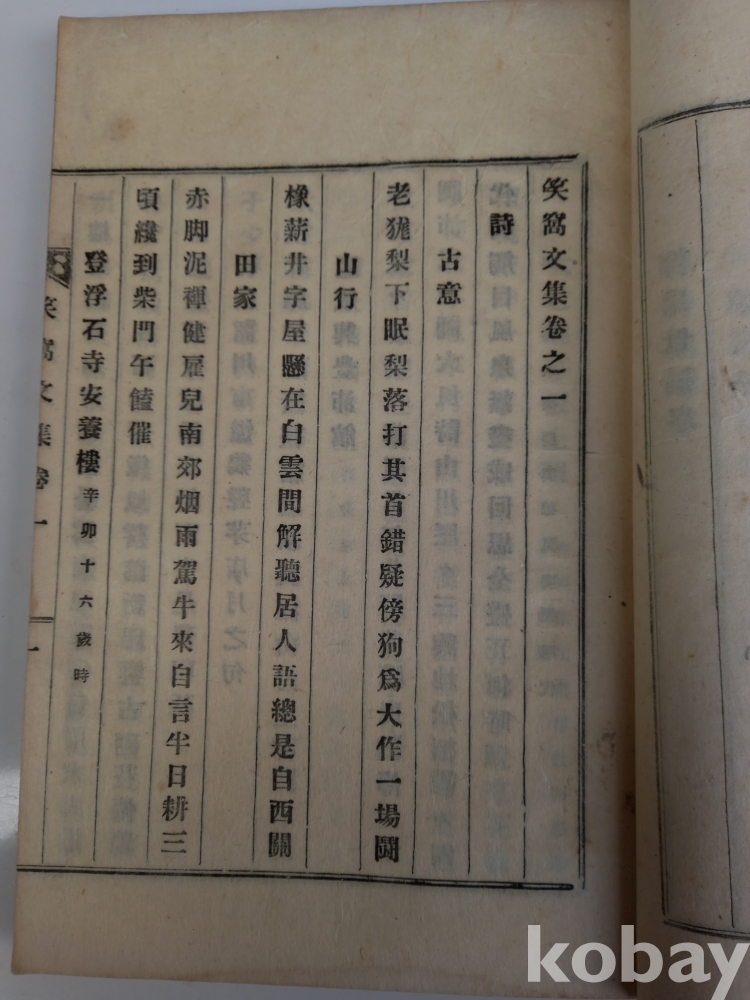 笑窩文集卷之一
詩
古意
老狵梨下眠梨落打其首錯疑傍狗爲大作一場鬪
山行
橡薪井字屋懸在白雲間解聽居人語總是自西關
田家
赤脚泥褌健雇兒南郊烟雨駕牛來自言半日耕三
頃纔到柴門午饁催
登浮石寺安養樓 辛卯十六歲時
笑窩文集 卷一 一
kobay